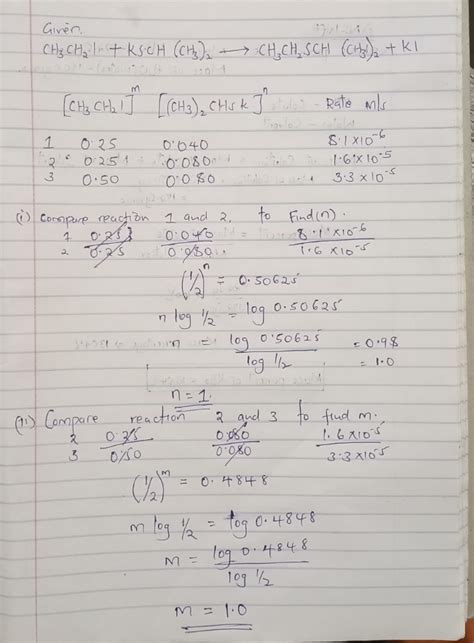 Given
CH3CH2I + KSCH (CH3)2 → CH3CH2SCH (CH3)2 + KI
[CH3CH2I]^m [(CH3)2CHSK]^n Rate M/s
1 0.25 0.040 8.1×10^-6
2 0.25 0.080 1.6×10^-5
3 0.50 0.080 3.3×10^-5
(i) Compare reaction 1 and 2 to Find(n).
1 0.25 0.040 8.1×10^-6
2 0.25 0.080 1.6×10^-5
(1/2)^n = 0.50625
n log 1/2 = log 0.50625
n = log 0.50625 / log 1/2 = 0.98
= 1.0
n = 1.
(ii) Compare reaction 2 and 3 to find m.
2 0.25 0.080 1.6×10^-5
3 0.50 0.080 3.3×10^-5
(1/2)^m = 0.4848
m log 1/2 = log 0.4848
m = log 0.4848 / log 1/2
m = 1.0